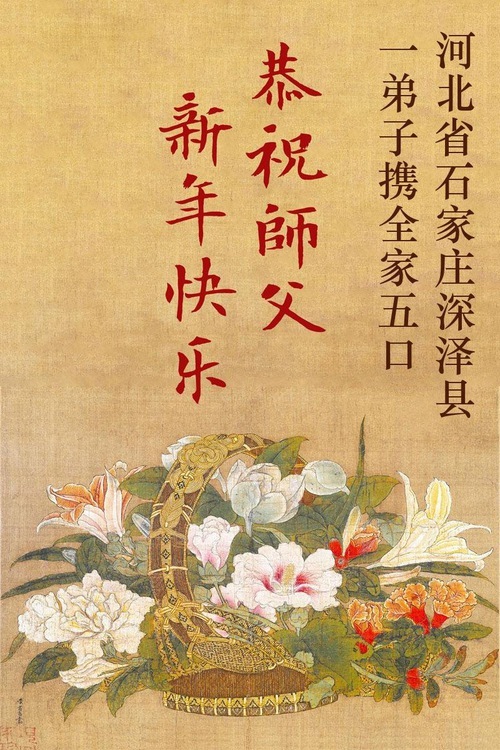 河北省石家庄深泽县
一弟子携全家五口
恭祝師父
新年快乐